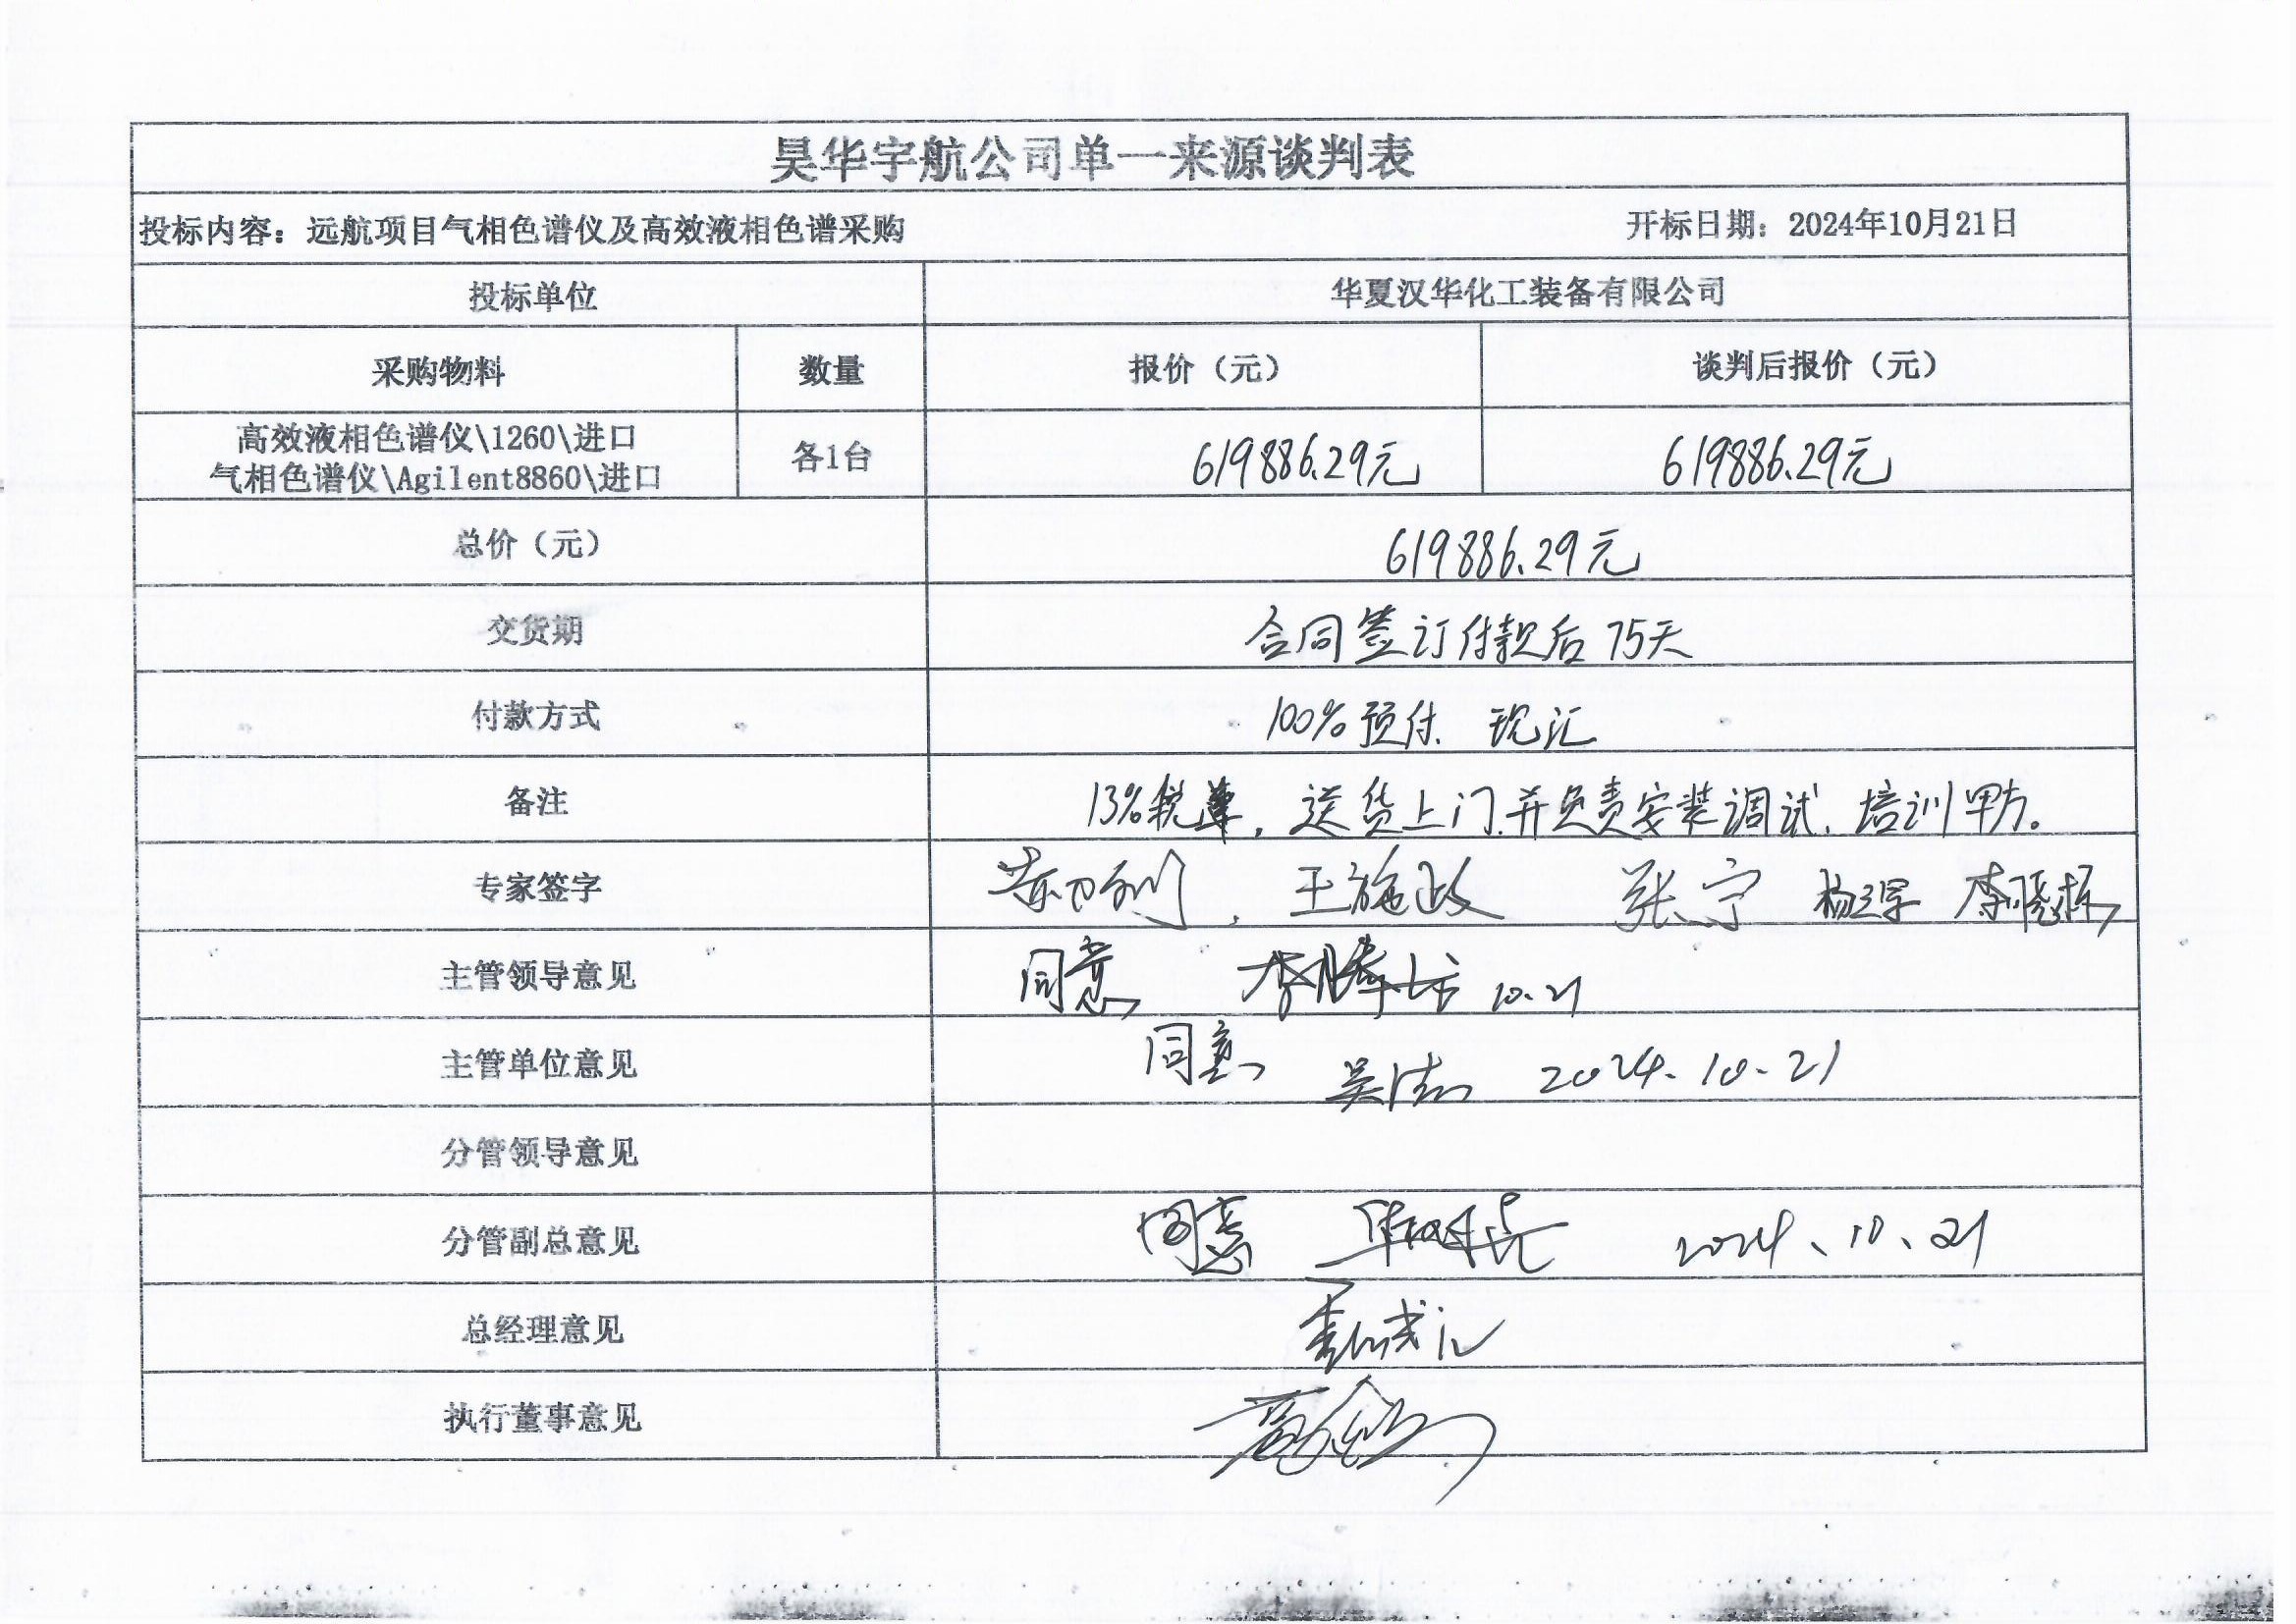 昊华宇航公司单一来源谈判表
投标内容：远航项目气相色谱仪及高效液相色谱采购 开标日期：2024年10月21日
投标单位 华夏汉华化工装备有限公司
采购物料 数量 报价（元） 谈判后报价（元）
高效液相色谱仪\1260\进口
气相色谱仪\Agilent8860\进口
各1台 619886.29元 619886.29元
总价（元） 619886.29元
交货期 合同签订付款后75天
付款方式 100%预付. 现汇
备注 13%税率, 送货上门.并负责安装调试. 培训甲方。
专家签字 王施政 张宁
主管领导意见 同意 10.21
主管单位意见 同意 2024.10.21
分管领导意见
分管副总意见 同意 2024、10、21
总经理意见
执行董事意见